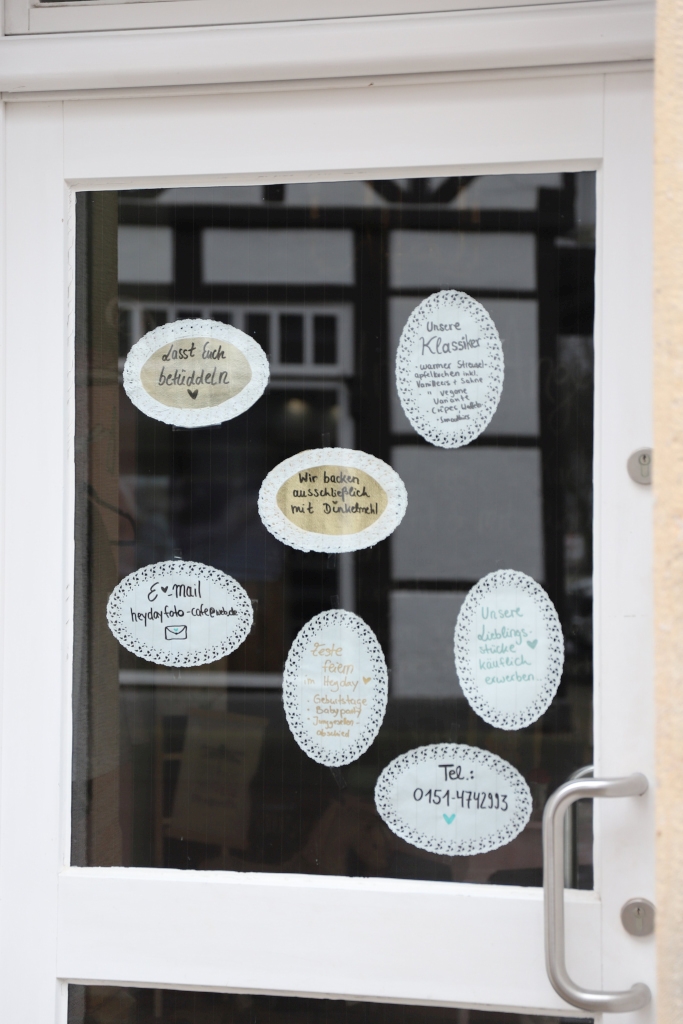 Lasst Euch
betüddeln
Unsere
Klassiker
- warmer Streusel-
apfelkuchen inkl.
Vanilleeis + Sahne
- " vegane
Variante
- Crêpes, Waffeln
- Smoothies
Wir backen
ausschließlich
mit Dinkelmehl
E-mail
heydayfoto-cafe@web.de
Feste
feiern
im Heyday
- Geburtstage
- Babyparty
- Junggesellen-
abschied
Unsere
Lieblings-
stücke
käuflich
erwerben..
Tel.:
0151-4742993